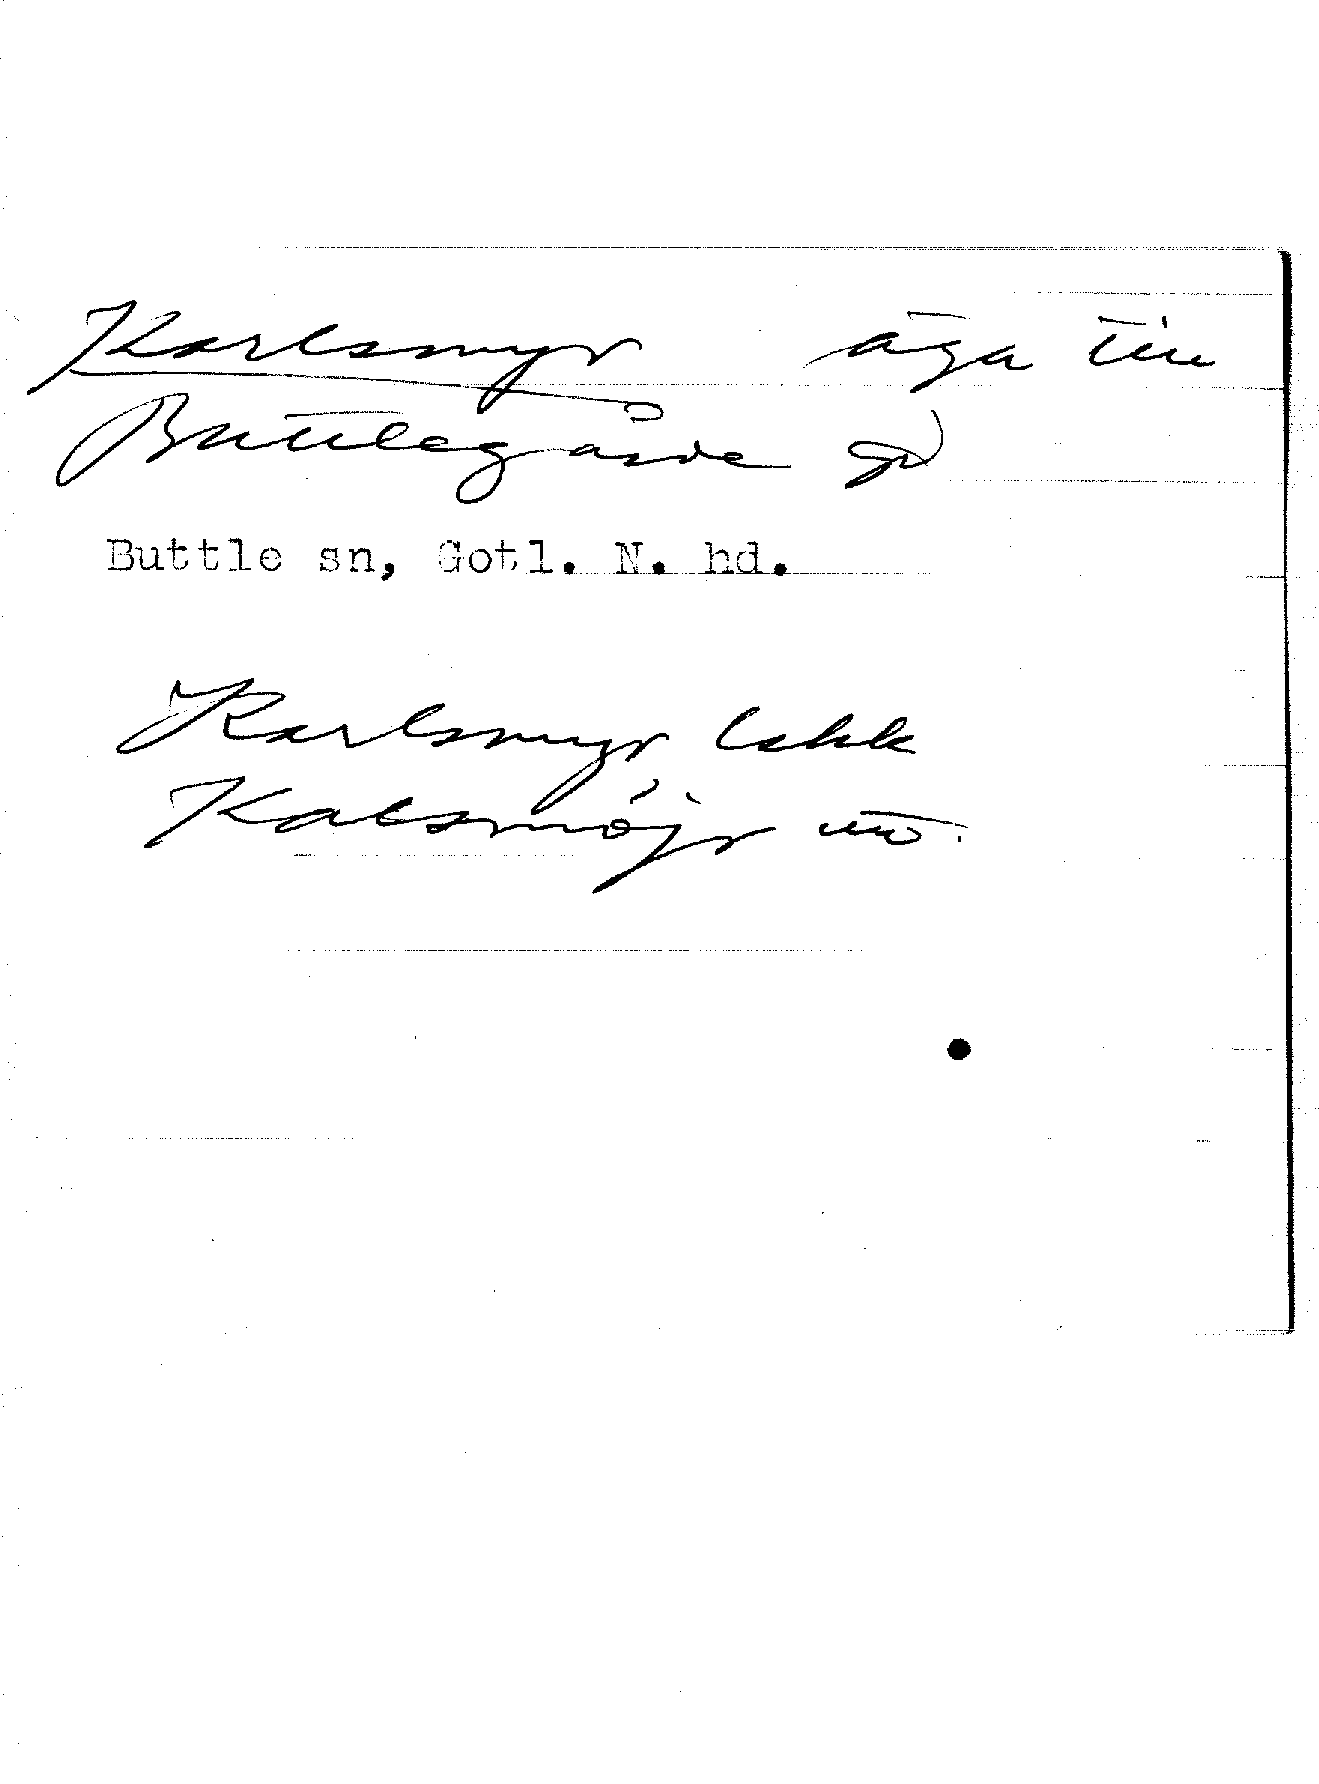 Karlsmyr äga till
Buttlegårde gd
Buttle sn, Gotl. N. hd.
Karlsmyr
Kalsmöjr